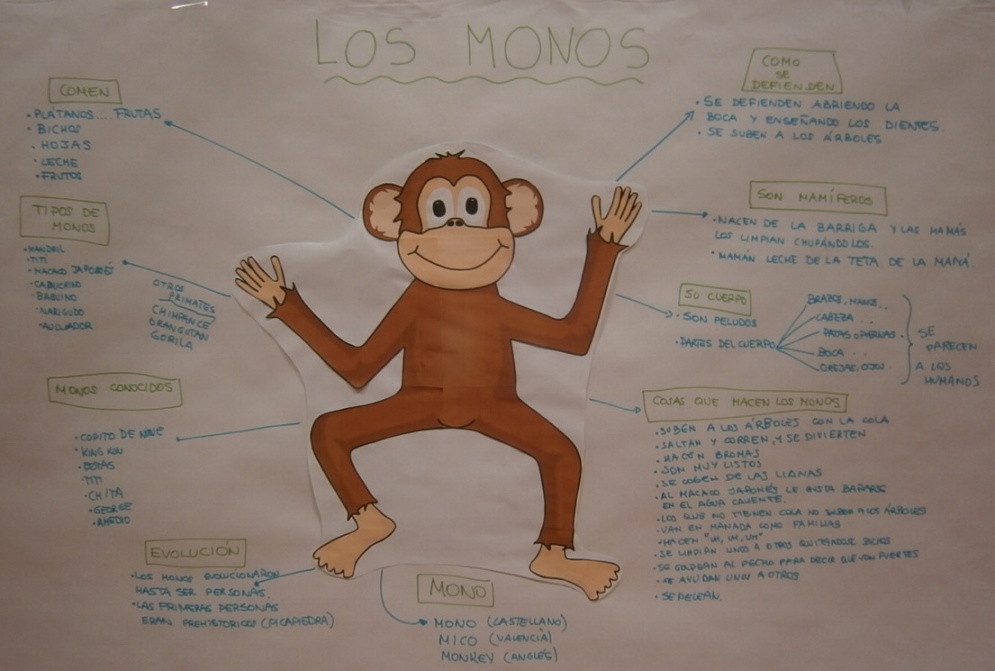 LOS MONOS
COMEN
• PLÁTANOS.... FRUTAS
• BICHOS
• HOJAS
• LECHE
• FRUTOS
TIPOS DE
MONOS
• MANDRIL
• TITÍ
• MACACO JAPONÉS
• CAPUCHINO
• BABUINO
• NARIGUDO
• AULLADOR
OTROS
PRIMATES
CHIMPANCE
ORANGUTAN
GORILA
MONOS CONOCIDOS
• COPITO DE NIEVE
• KING KON
• TITI
• CHITA
• GEORGE
• AMEDIO
EVOLUCIÓN
• LOS MONOS EVOLUCIONARON
HASTA SER PERSONAS.
• LAS PRIMERAS PERSONAS
ERAN PREHISTORICOS (PICAPIEDRA)
MONO
MONO (CASTELLANO)
MICO (VALENCIÀ)
MONKEY (ANGLÉS)
COMO
SE
DEFIENDEN
• SE DEFIENDEN ABRIENDO LA
BOCA Y ENSEÑANDO LOS DIENTES.
• SE SUBEN A LOS ÁRBOLES
SON MAMÍFEROS
• NACEN DE LA BARRIGA Y LAS MAMÁS
LOS LIMPIAN CHUPÁNDOLOS.
• MAMÁN LECHE DE LA TETA DE LA MAMÁ.
SU CUERPO
• SON PELUDOS
• PARTES DEL CUERPO
BRAZOS, MANOS...
CABEZA ...
PATAS O PIERNAS.
BOCA ...
OREJAS, OJOS..
SE
PARECEN
A LOS
HUMANOS
COSAS QUE HACEN LOS MONOS
• SUBEN A LOS ÁRBOLES CON LA COLA
• SALTAN Y CORREN, Y SE DIVIERTEN
• HACEN BROMAS
• SON MUY LISTOS
• SE COGEN DE LAS LIANAS
• AL MACACO JAPONÉS LE GUSTA BAÑARSE
EN EL AGUA CALIENTE.
• LOS QUE NO TIENEN COLA NO SUBEN A LOS ÁRBOLES
• VAN EN MANADA COMO FAMILIAS
• HACEN "UH, UH, UH"
• SE LIMPIAN UNOS A OTROS QUITÁNDOSE BICHOS
• SE GOLPEAN AL PECHO PARA DECIR QUE SON FUERTES
• SE AYUDAN UNOS A OTROS
• SE PELEAN.